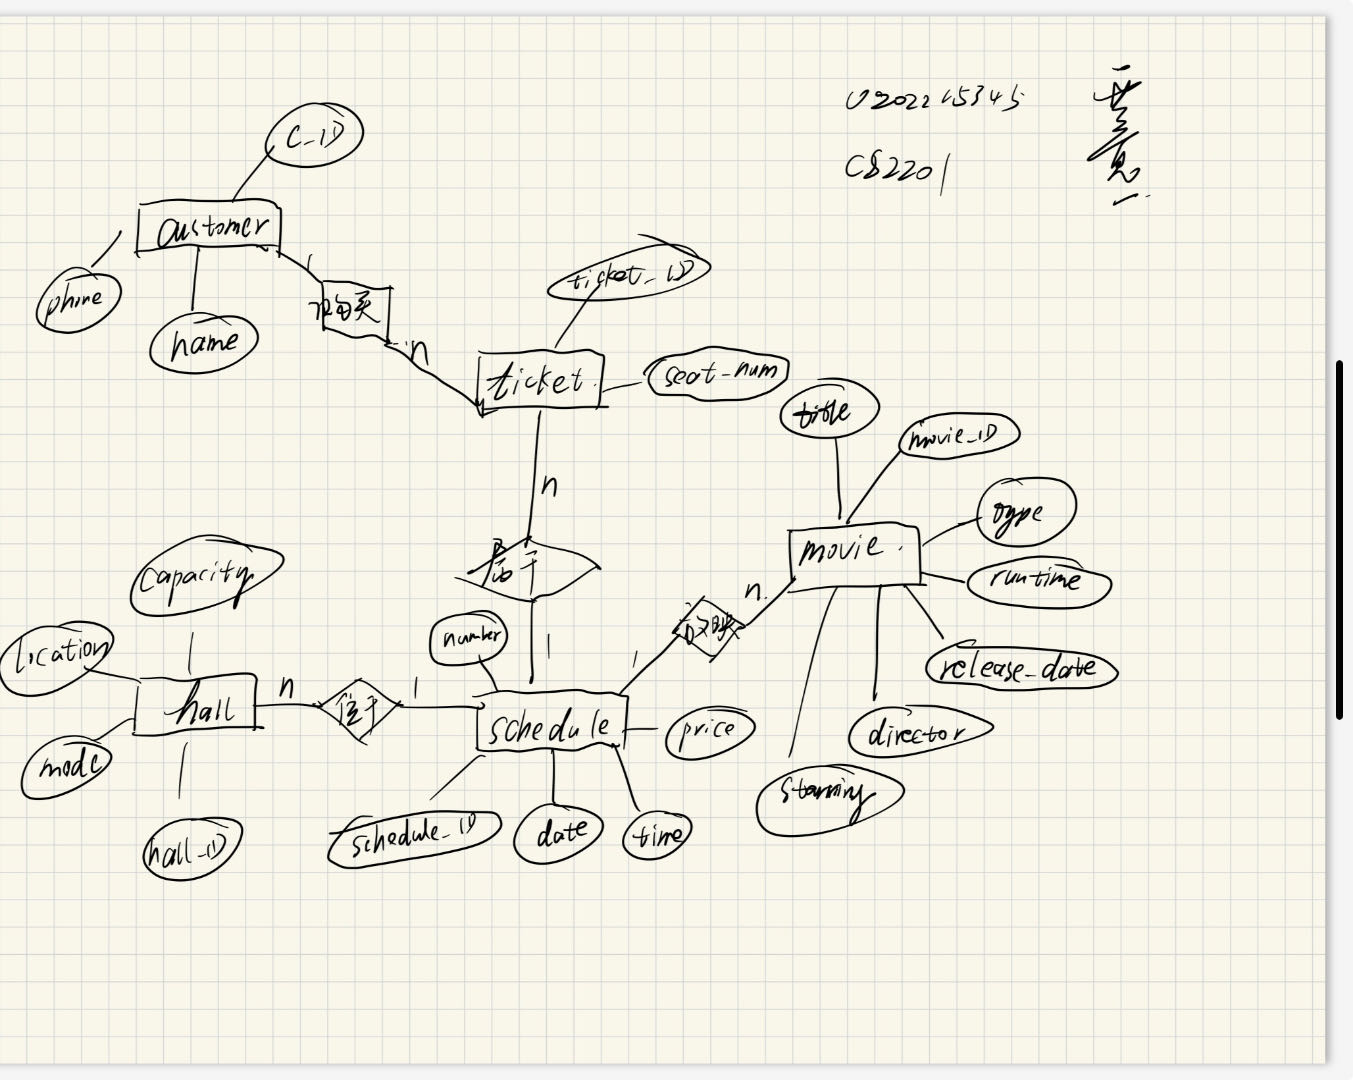 U202215345
CS2201
C_ID
customer
phone
name
1
购买
n
ticket_ID
ticket
seat-num
title
movie_ID
type
movie
runtime
release_date
director
starring
n
属于
1
n
放映
1
number
capacity
location
hall
mode
hall_ID
n
位于
1
schedule
price
schedule_ID
date
time